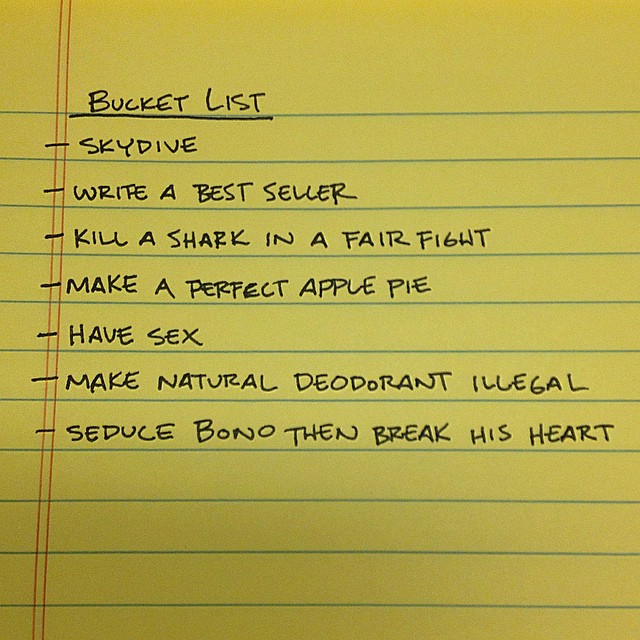 BUCKET LIST
- SKYDIVE
- WRITE A BEST SELLER
- KILL A SHARK IN A FAIR FIGHT
- MAKE A PERFECT APPLE PIE
- HAVE SEX
- MAKE NATURAL DEODORANT ILLEGAL
- SEDUCE BONO THEN BREAK HIS HEART